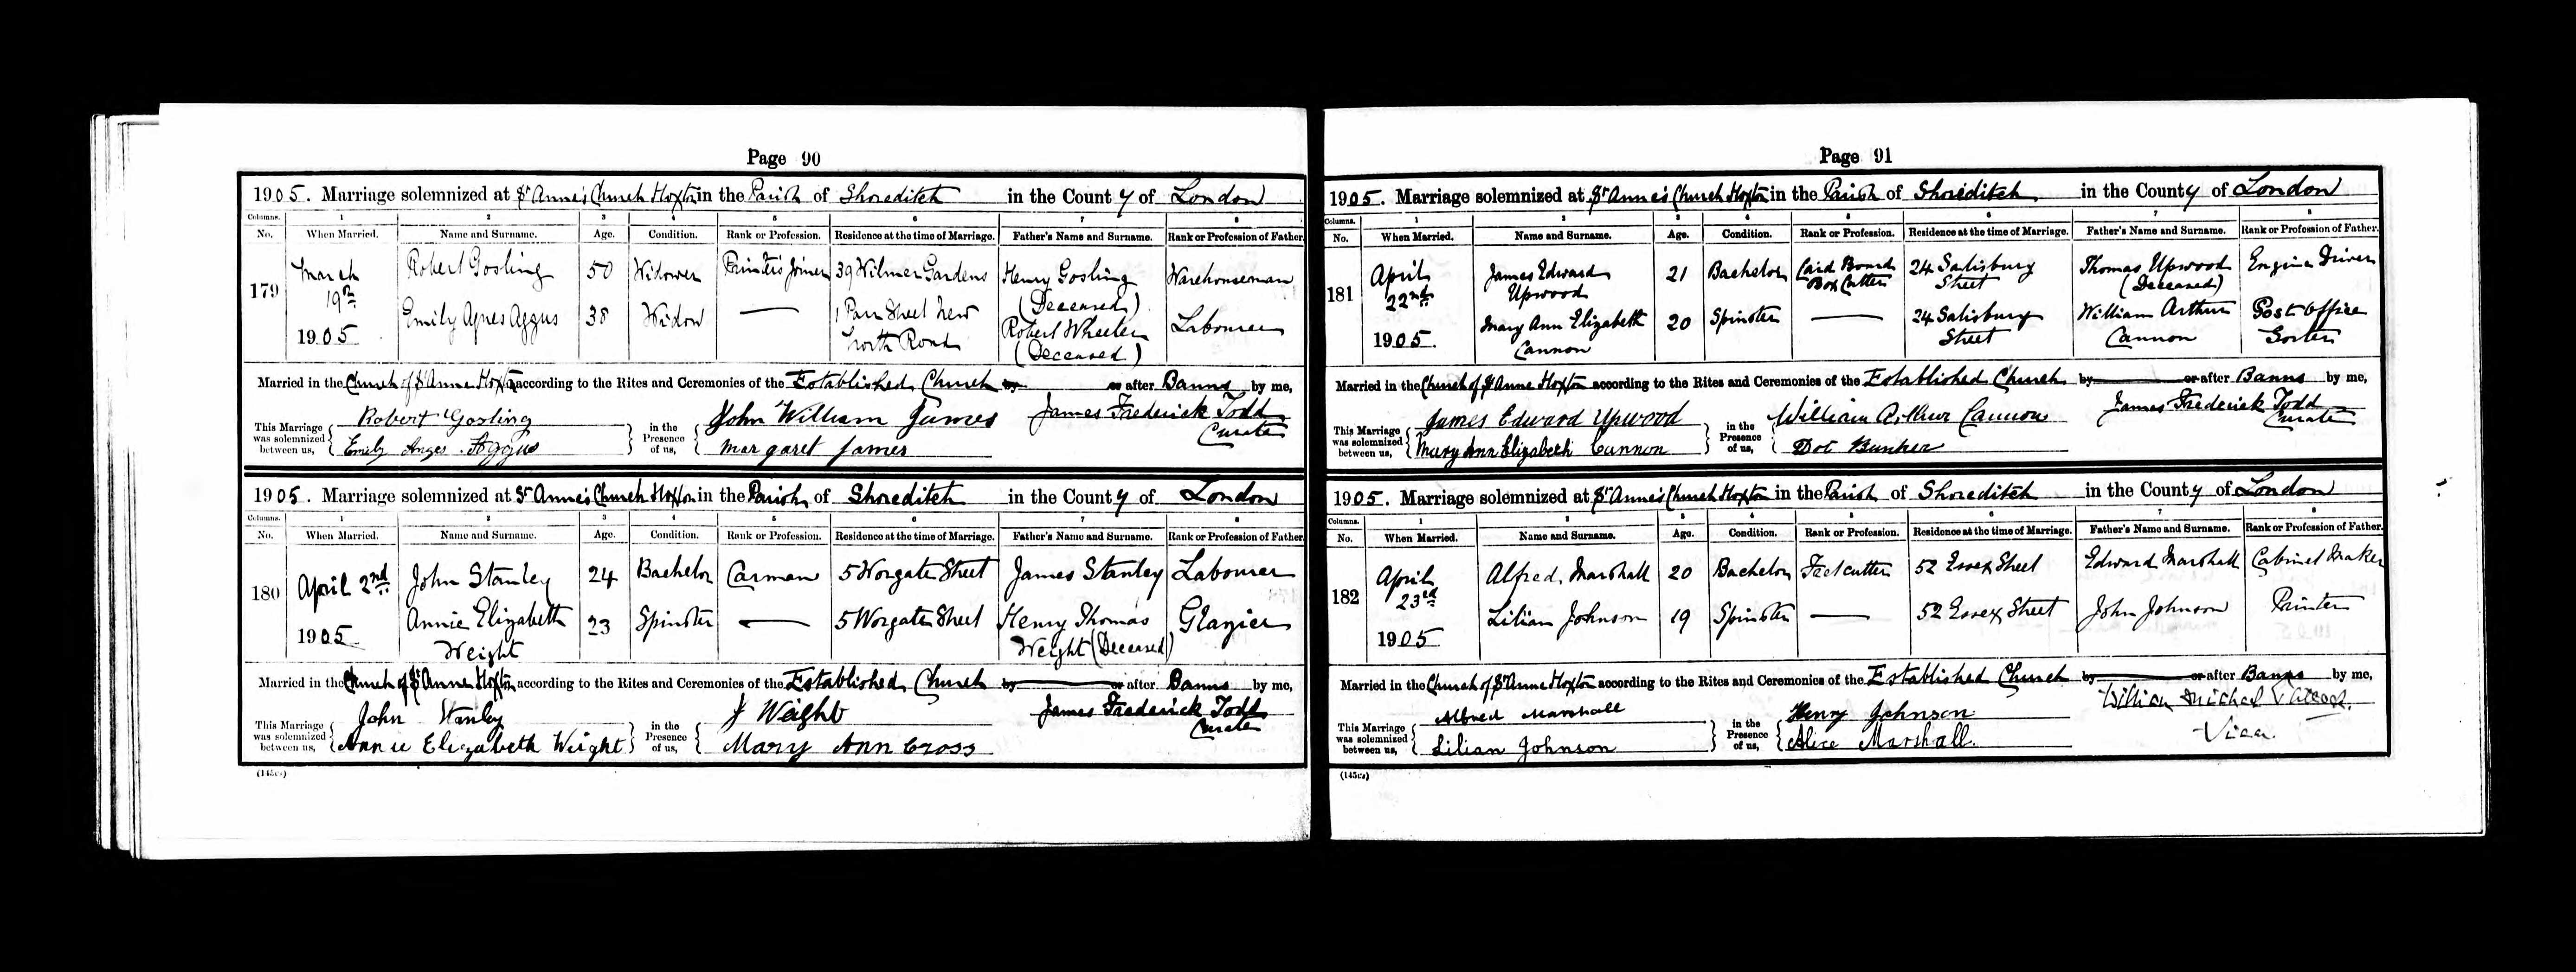 Page 90
1905. Marriage solemnized at St Anne's Church Hoxton in the Parish of Shoreditch in the County of London
Columns. 1 2 3 4 5 6 7 8
No. When Married. Name and Surname. Age. Condition. Rank or Profession. Residence at the time of Marriage. Father's Name and Surname. Rank or Profession of Father.
179 March 19th 1905 Robert Gosling 50 Widower Printer's Joiner 39 Wilmer Gardens Henry Gosling (Deceased) Warehouseman
Emily Agnes Aggus 38 Widow — 1 Parr Street New North Road Robert Wheeler (Deceased) Labourer
Married in the Church of St Anne Hoxton according to the Rites and Ceremonies of the Established Church by or after Banns by me,
This Marriage was solemnized between us, { Robert Gosling
Emily Anges Aggus } in the Presence of us, { John William James
Margaret James
James Frederick Todd
Curate
1905. Marriage solemnized at St Anne's Church Hoxton in the Parish of Shoreditch in the County of London
Columns. 1 2 3 4 5 6 7 8
No. When Married. Name and Surname. Age. Condition. Rank or Profession. Residence at the time of Marriage. Father's Name and Surname. Rank or Profession of Father.
180 April 2nd 1905 John Stanley 24 Bachelor Carman 5 Worgate Street James Stanley Labourer
Annie Elizabeth Weight 23 Spinster — 5 Worgate Street Henry Thomas Weight (Deceased) Glazier
Married in the Church of St Anne Hoxton according to the Rites and Ceremonies of the Established Church by or after Banns by me,
This Marriage was solemnized between us, { John Stanley
Annie Elizabeth Weight } in the Presence of us, { J Weight
Mary Ann Cross
James Frederick Todd
Curate
(145cs)
Page 91
1905. Marriage solemnized at St Anne's Church Hoxton in the Parish of Shoreditch in the County of London
Columns. 1 2 3 4 5 6 7 8
No. When Married. Name and Surname. Age. Condition. Rank or Profession. Residence at the time of Marriage. Father's Name and Surname. Rank or Profession of Father.
181 April 22nd 1905. James Edward Upwood 21 Bachelor Card Board Box Cutter 24 Salisbury Street Thomas Upwood (Deceased) Engine Driver
Mary Ann Elizabeth Cannon 20 Spinster — 24 Salisbury Street William Arthur Cannon Post Office Sorter
Married in the Church of St Anne Hoxton according to the Rites and Ceremonies of the Established Church by or after Banns by me,
This Marriage was solemnized between us, { James Edward Upwood
Mary Ann Elizabeth Cannon } in the Presence of us, { William Arthur Cannon
Dot Bunker
James Frederick Todd
Curate
1905. Marriage solemnized at St Anne's Church Hoxton in the Parish of Shoreditch in the County of London
Columns. 1 2 3 4 5 6 7 8
No. When Married. Name and Surname. Age. Condition. Rank or Profession. Residence at the time of Marriage. Father's Name and Surname. Rank or Profession of Father.
182 April 23rd 1905 Alfred Marshall 20 Bachelor Fret cutter 52 Essex Street Edward Marshall Cabinet Maker
Lilian Johnson 19 Spinster — 52 Essex Street John Johnson Painter
Married in the Church of St Anne Hoxton according to the Rites and Ceremonies of the Established Church by or after Banns by me,
This Marriage was solemnized between us, { Alfred Marshall
Lilian Johnson } in the Presence of us, { Henry Johnson
Alice Marshall.
William Michel
Vicar.
(145cs)